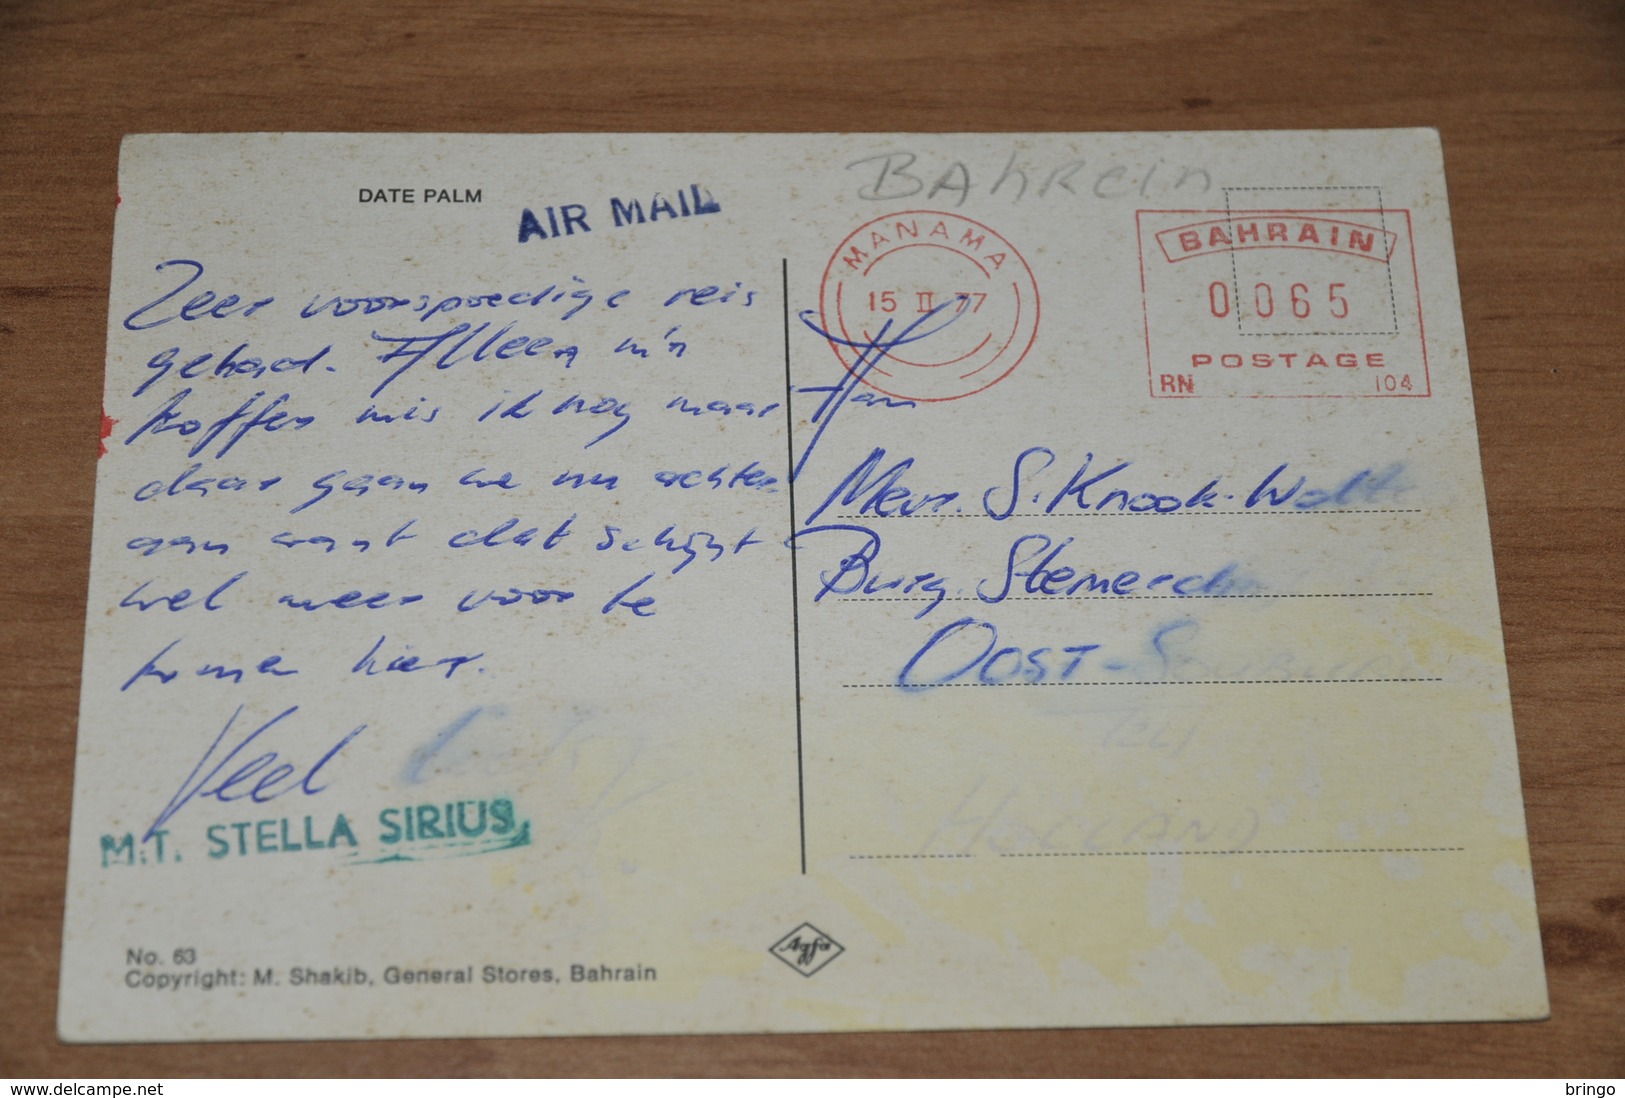 DATE PALM
AIR MAIL
Zeer voorspoedige reis
gehad. Alleen m'n
koffer mis ik nog maar
daar gaan we nu achter
aan want dat schijnt
wel meer voor te
komen hier.
Veel
Han
M.T. STELLA SIRIUS
No. 63
Copyright: M. Shakib, General Stores, Bahrain
Agfa
BAhRein
MANAMA
15 II 77
BAHRAIN
0065
POSTAGE
RN 104
Mevr. S. Knook-
Burg.
OOST-
HOLLAND
www.delcampe.net
bringo